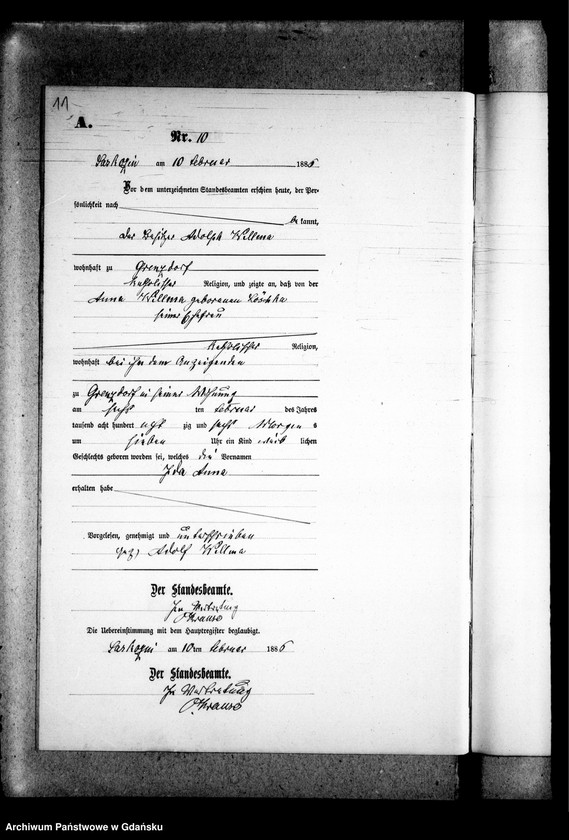 11
A.
Nr. 10
am 10 Februar 1886
Vor dem unterzeichneten Standesbeamten erschien heute, der Per-
sönlichkeit nach
bekannt,
der Besitzer Adolph Willma
wohnhaft zu Grenzdorf
katholischer Religion, und zeigte an, daß von der
Anna Willma geborenen
seiner Ehefrau
katholischer Religion,
wohnhaft bei ihm dem Anzeigenden
zu Grenzdorf in seiner Wohnung
am sechsten Februar des Jahres
tausend acht hundert achtzig und sechs Morgens
um sieben Uhr ein Kind weiblichen
Geschlechts geboren worden sei, welches die Vornamen
Ida Anna
erhalten habe
Vorgelesen, genehmigt und unterschrieben
gez) Adolf Willma
Der Standesbeamte.
In Vertretung
Krause
Die Uebereinstimmung mit dem Hauptregister beglaubigt.
am 10ten Februar 1886
Der Standesbeamte.
In Vertretung
Krause
Archiwum Państwowe w Gdańsku